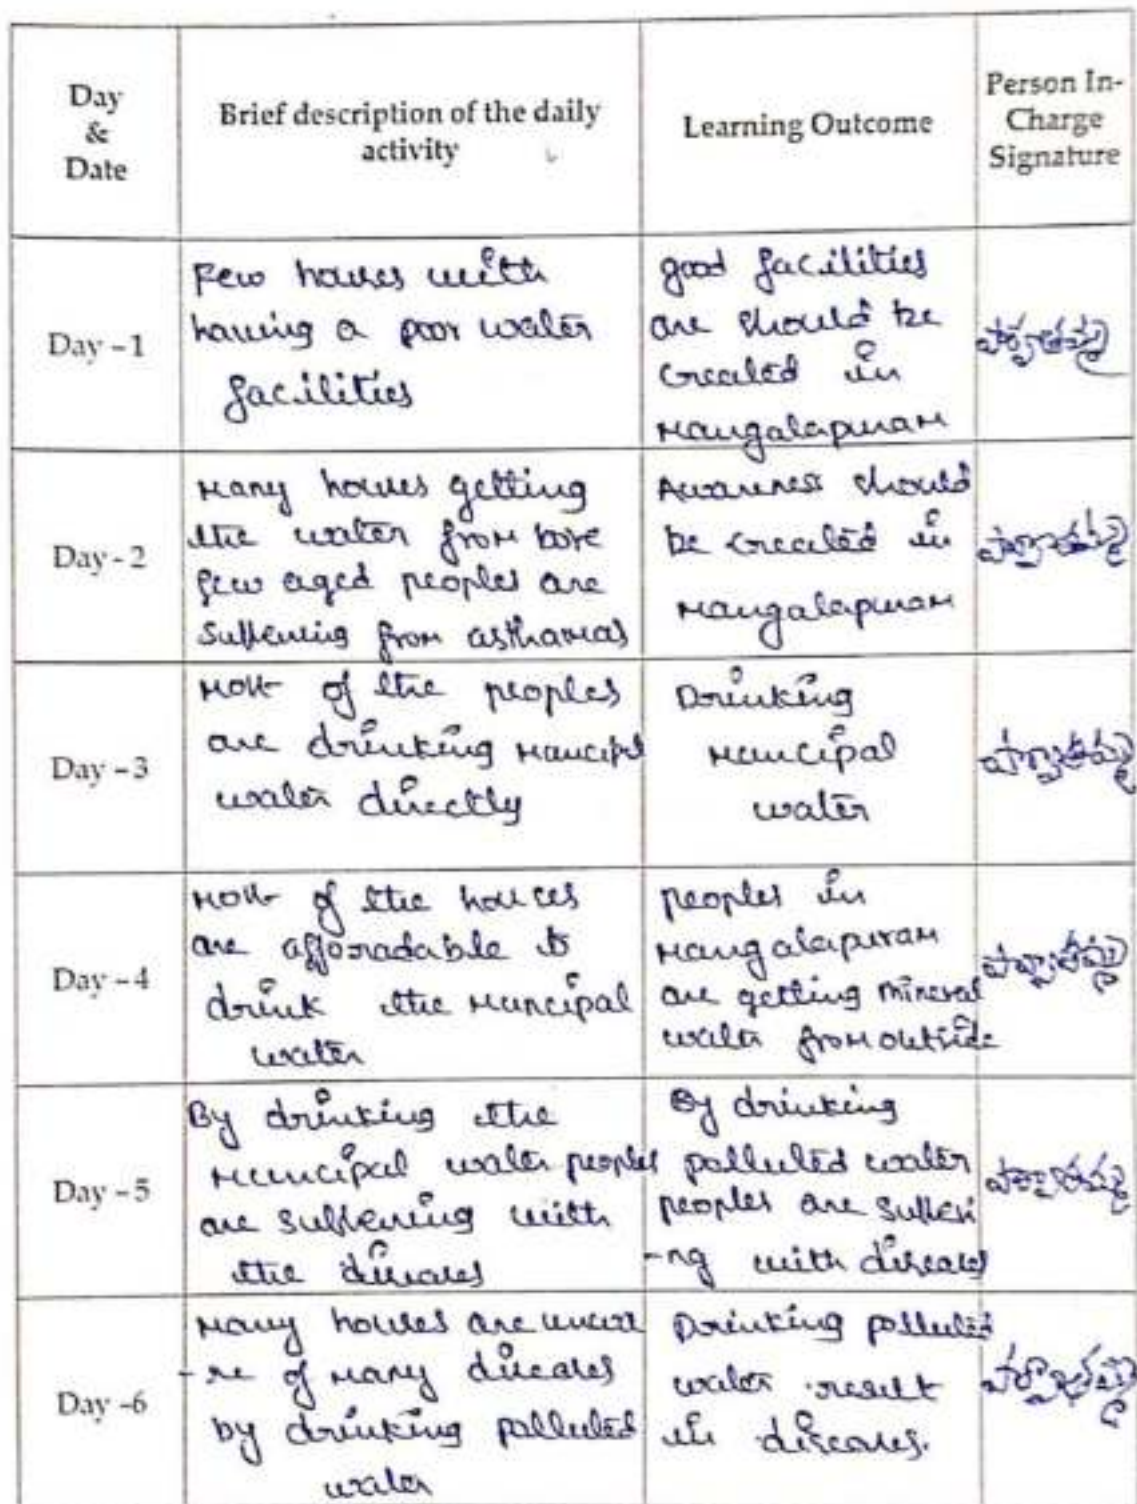 Day
&
Date
Brief description of the daily
activity
Learning Outcome
Person In-
Charge
Signature
Day -1
Few houses with
having a poor water
facilities
good facilities
are should be
created in
Mangalapuram
Day - 2
Many houses getting
the water from bore
few aged peoples are
suffering from asthamas
Awareness should
be created in
Mangalapuram
Day -3
Most of the peoples
are drinking Muncipl
water directly
Drinking
Muncipal
water
Day -4
Most of the houces
are afforadable to
drink the Muncipal
water
peoples in
Mangalapuram
are getting mineral
water from outside
Day -5
By drinking the
Muncipal water peoples
are suffering with
the diseases
By drinking
polluted water
peoples are sufferi
-ng with diseases
Day -6
Many houses are unawa
-re of many diseases
by drinking polluted
water
Drinking polluted
water result
in diseases.